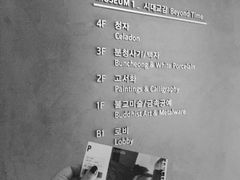 MUSEUM 1. 시대교감 Beyond Time
4F 청자
Celadon
3F 분청사기/백자
Buncheong & White Porcelain
2F 고서화
Paintings & Calligraphy
1F 불교미술/금속공예
Buddhist Art & Metalware
B1 로비
Lobby
P